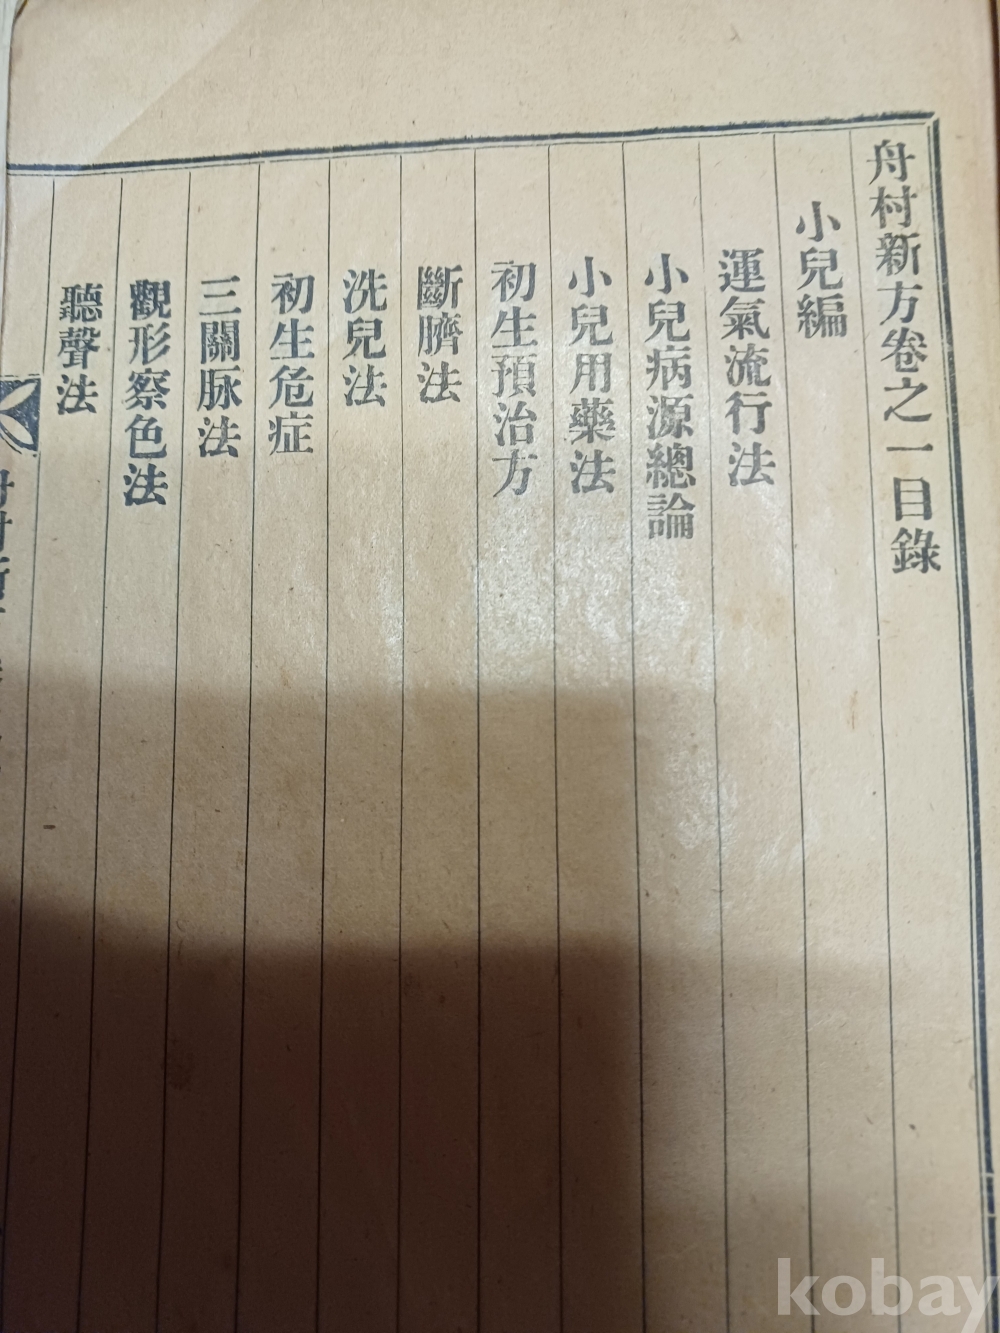 舟村新方卷之一目錄
小兒編
運氣流行法
小兒病源總論
小兒用藥法
初生預治方
斷臍法
洗兒法
初生危症
三關脉法
觀形察色法
聽聲法
kobay